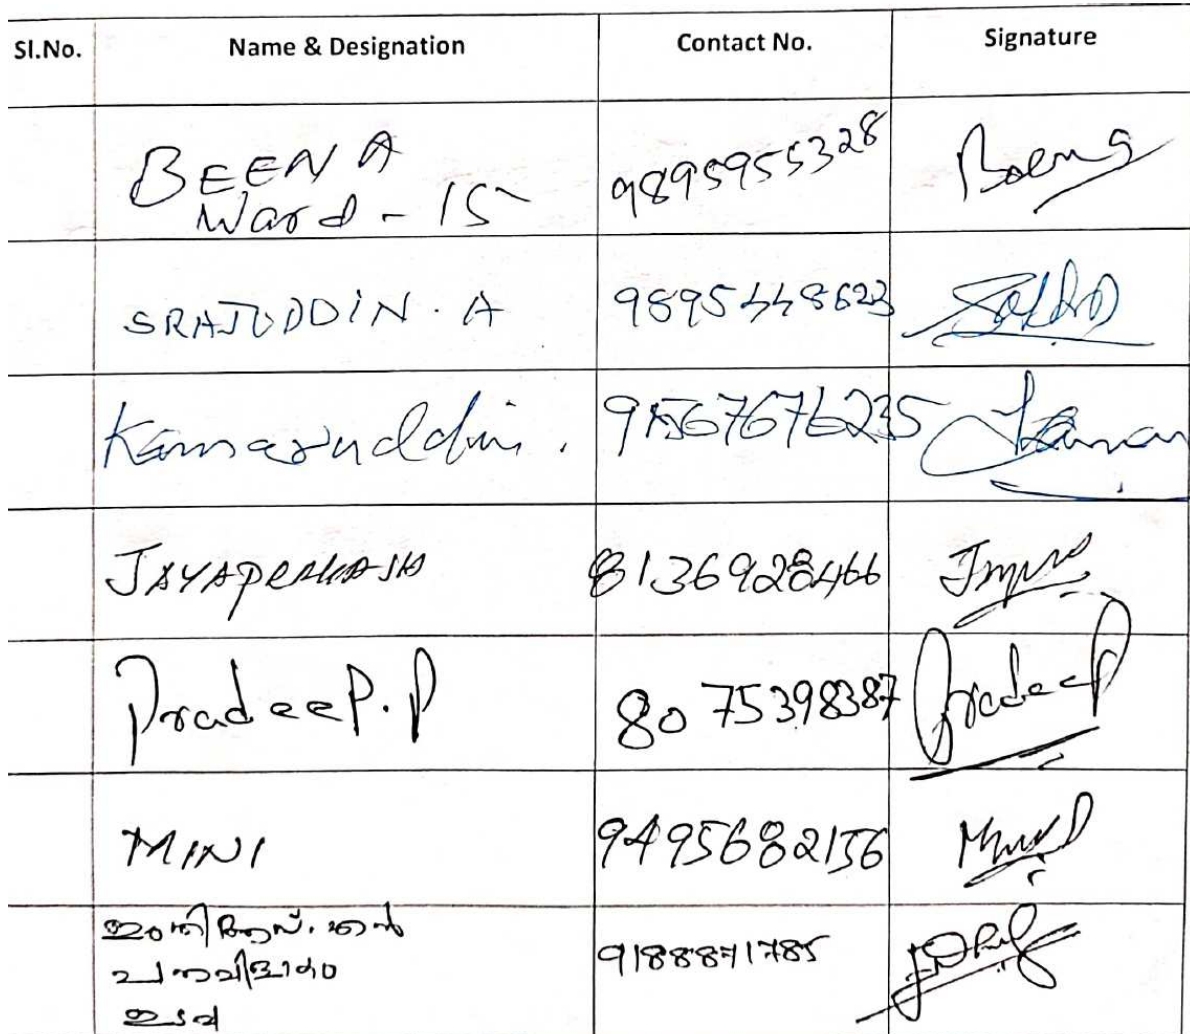 Sl.No. Name & Designation Contact No. Signature
BEENA 9895955328 Beena
Ward - 15
SRAJUDDIN . A 9895448623
Kamaruddin . 9567676235
JAYAPRAKASH 8136928466
PradeeP. P 80 75398387 Pradeep
MINI 9495682156
9188871785
ഇടവ